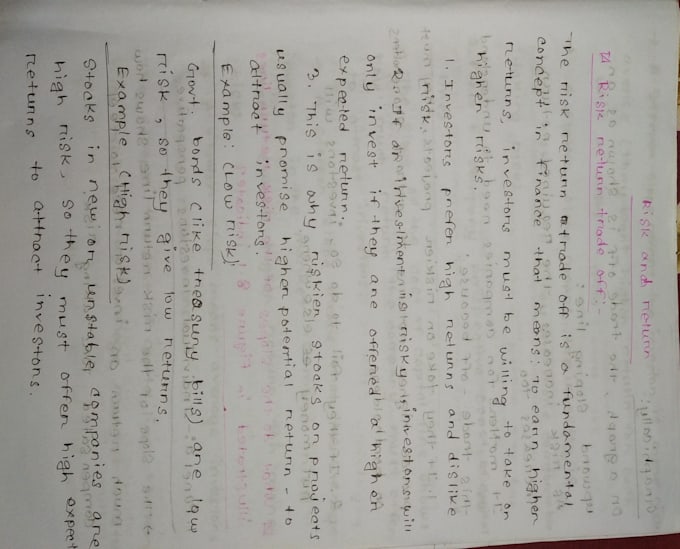 Risk and return
Risk return trade off:-
The risk return atrade off is a fundamental
concept in finance that means: to earn higher
returns, investors must be willing to take on
higher risks.
1. Investors prefer high returns and dislike
risk.
2. If an investment is risky, investors will
only invest if they are offered a higher
expected return.
3. This is why riskier stocks or projects
usually promise higher potential return - to
attract investors.
Example: (Low risk)
Govt. bonds (like treasury bills) are low
risk, so they give low returns.
Example (High risk)
Stocks in new or unstable companies are
high risk, so they must offer high expect
returns to attract investors.